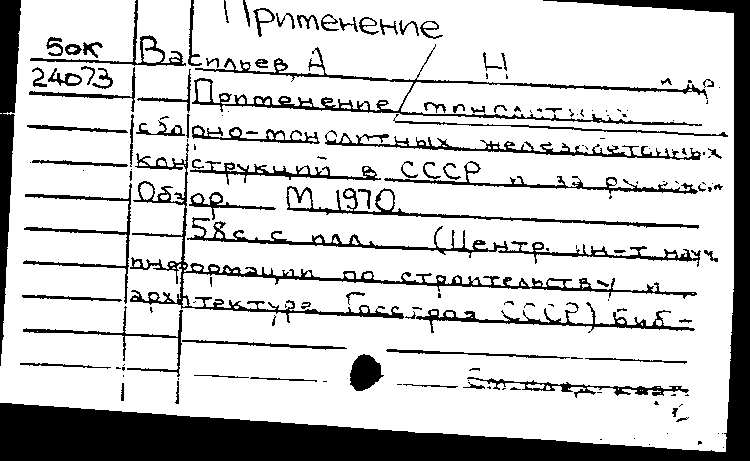 Применение
50К
24073
Васильев, А Н и др
Применение монолитных
сборно-монолитных железобетонных
конструкций в СССР и за рубежом
Обзор. М, 1970.
58с. с илл. (Центр. ин-т науч.
информации по строительству и
архитектуре Госстроя СССР) Биб-
См. след. карт.